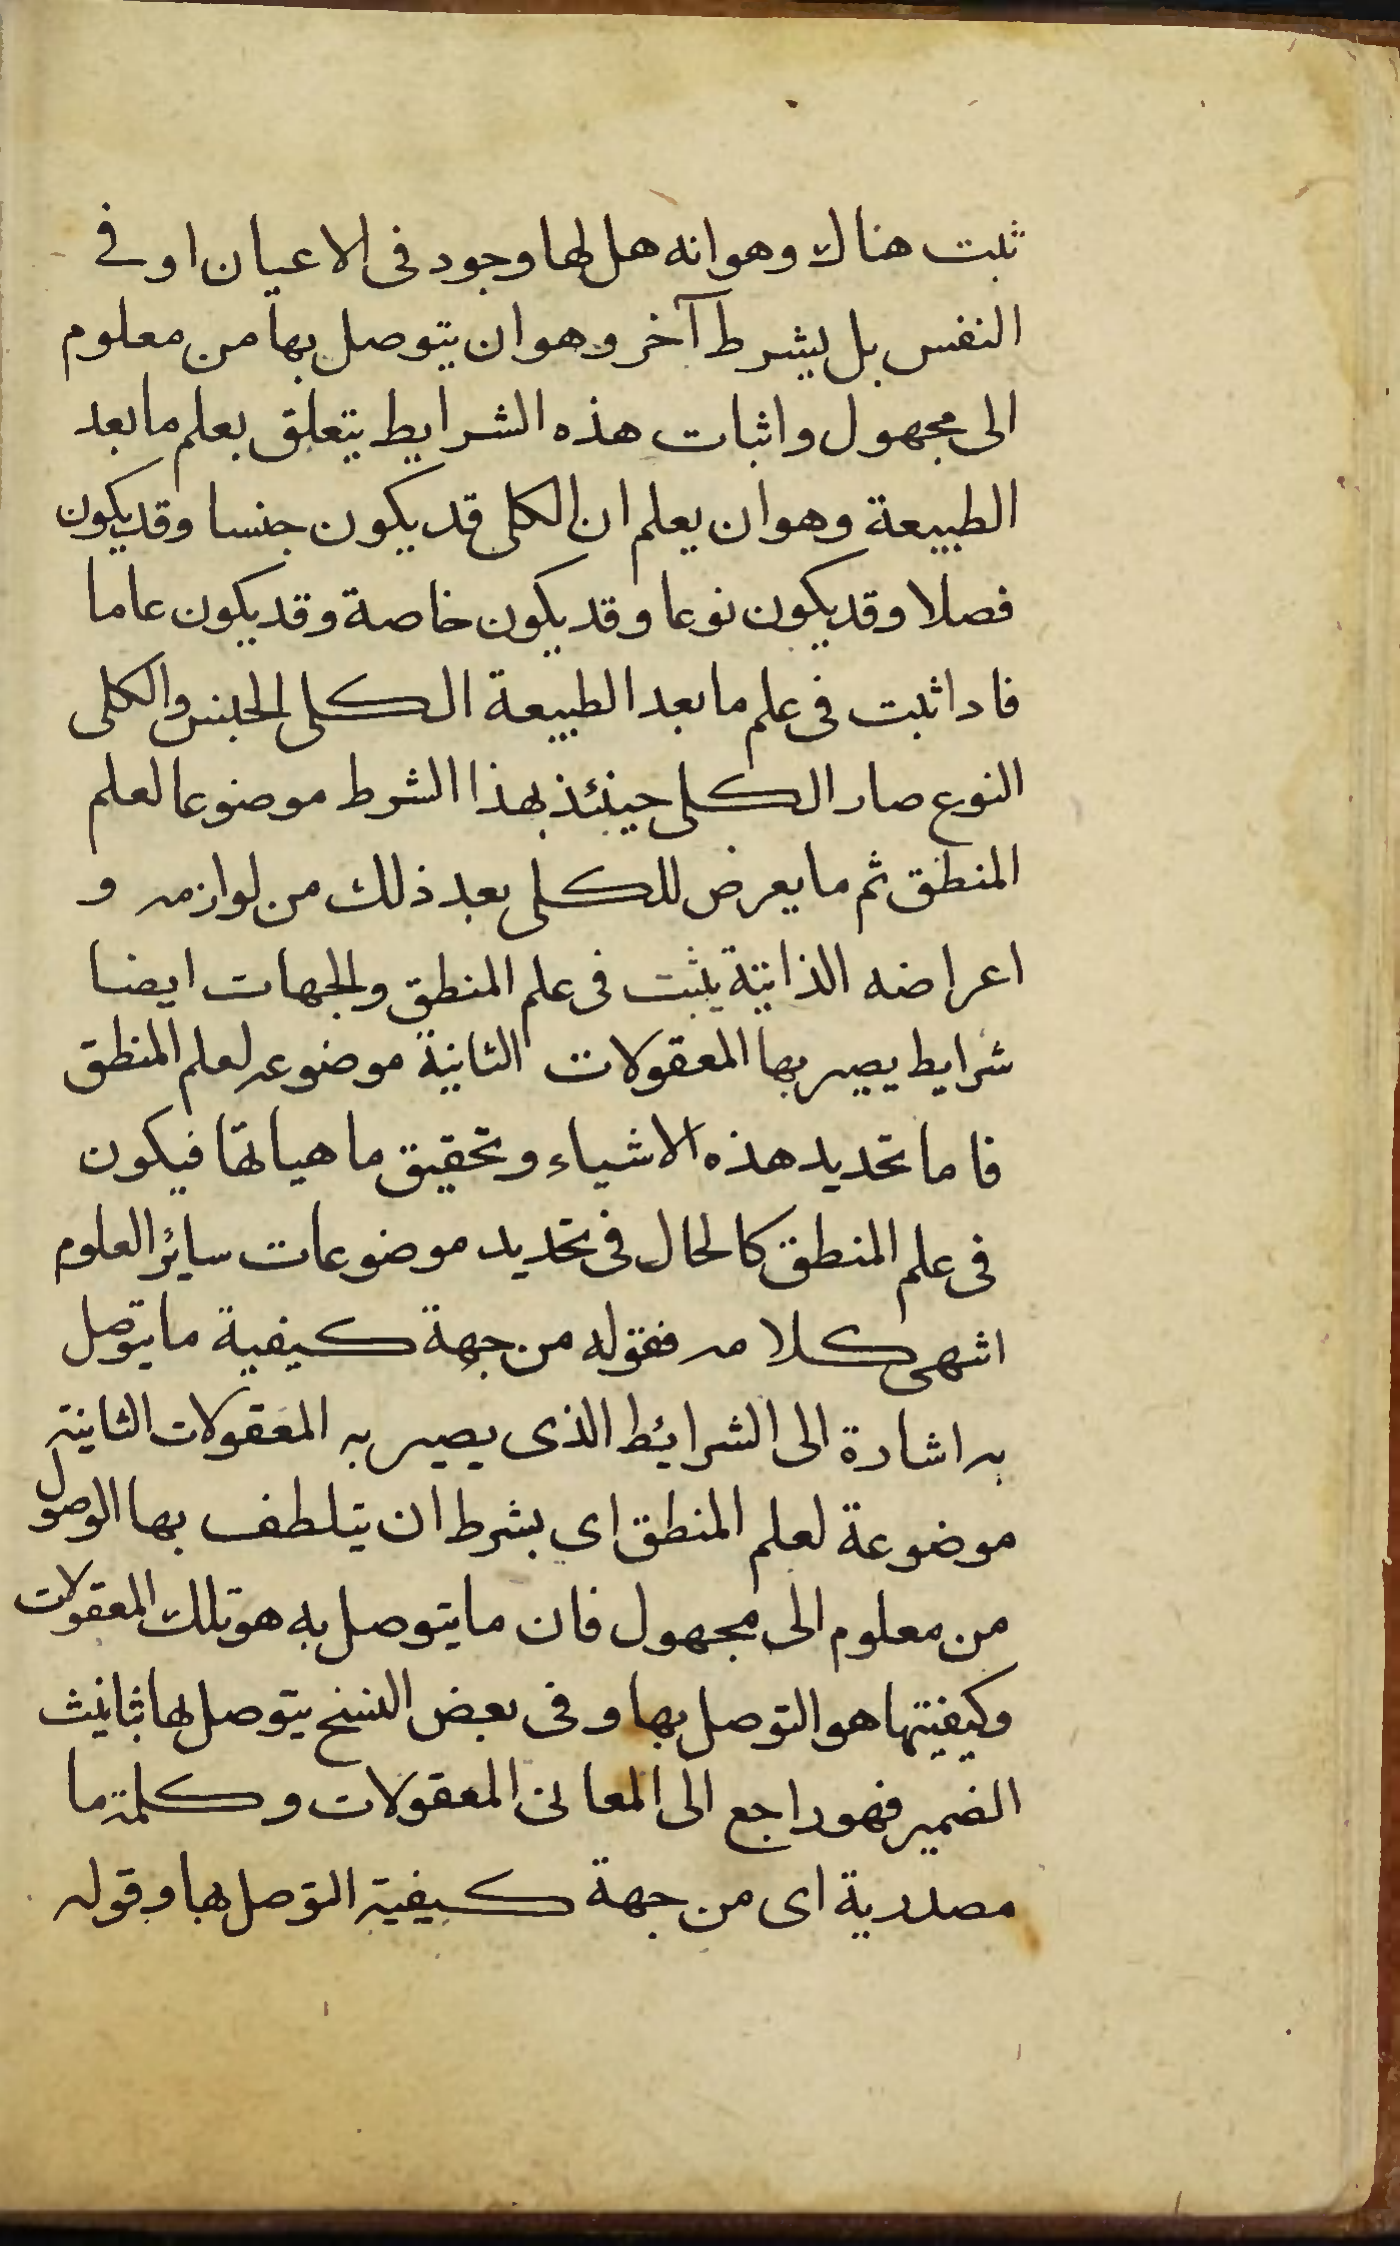 ثبت هناك وهو انه هل لها وجود فى الاعيان او فى
النفس بل بشرط آخر وهو ان يتوصل بها من معلوم
الى مجهول واثبات هذه الشرايط يتعلق بعلم ما بعد
الطبيعة وهو ان يعلم ان الكلى قد يكون جنسا وقد يكون
فصلا وقد يكون نوعا وقد يكون خاصة وقد يكون عاما
فاذا ثبت فى علم ما بعد الطبيعة الكلى الجنس والكلى
النوع صار الكلى حينئذ بهذا الشرط موضوعا لعلم
المنطق ثم ما يعرض للكلى بعد ذلك من لوازمه و
اعراضه الذاتية يثبت فى علم المنطق والجهات ايضا
شرايط يصير بها المعقولات الثانية موضوعه لعلم المنطق
فاما تحديد هذه الاشياء وتحقيق ماهياتها فيكون
فى علم المنطق كالحال فى تحديد موضوعات سائر العلوم
انتهى كلامه فقوله من جهة كيفية ما يتوصل
به اشارة الى الشرائط الذى يصير به المعقولات الثانية
موضوعة لعلم المنطق اى بشرط ان يتلطف بها الوصول
من معلوم الى مجهول فان ما يتوصل به هو تلك المعقولات
وكيفيتها هو التوصل بها وفى بعض النسخ يتوصل بها بتانيث
الضمير فهو راجع الى المعانى المعقولات وكلمة ما
مصدرية اى من جهة كيفية التوصل بها وقوله